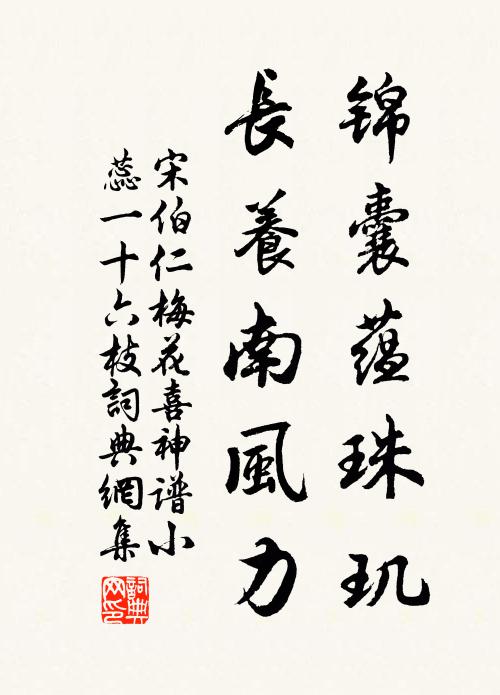 锦囊蕴珠玑
長養南風力
宋伯仁梅花喜神谱小
蕊一十六枝詞典網集
詞典网印